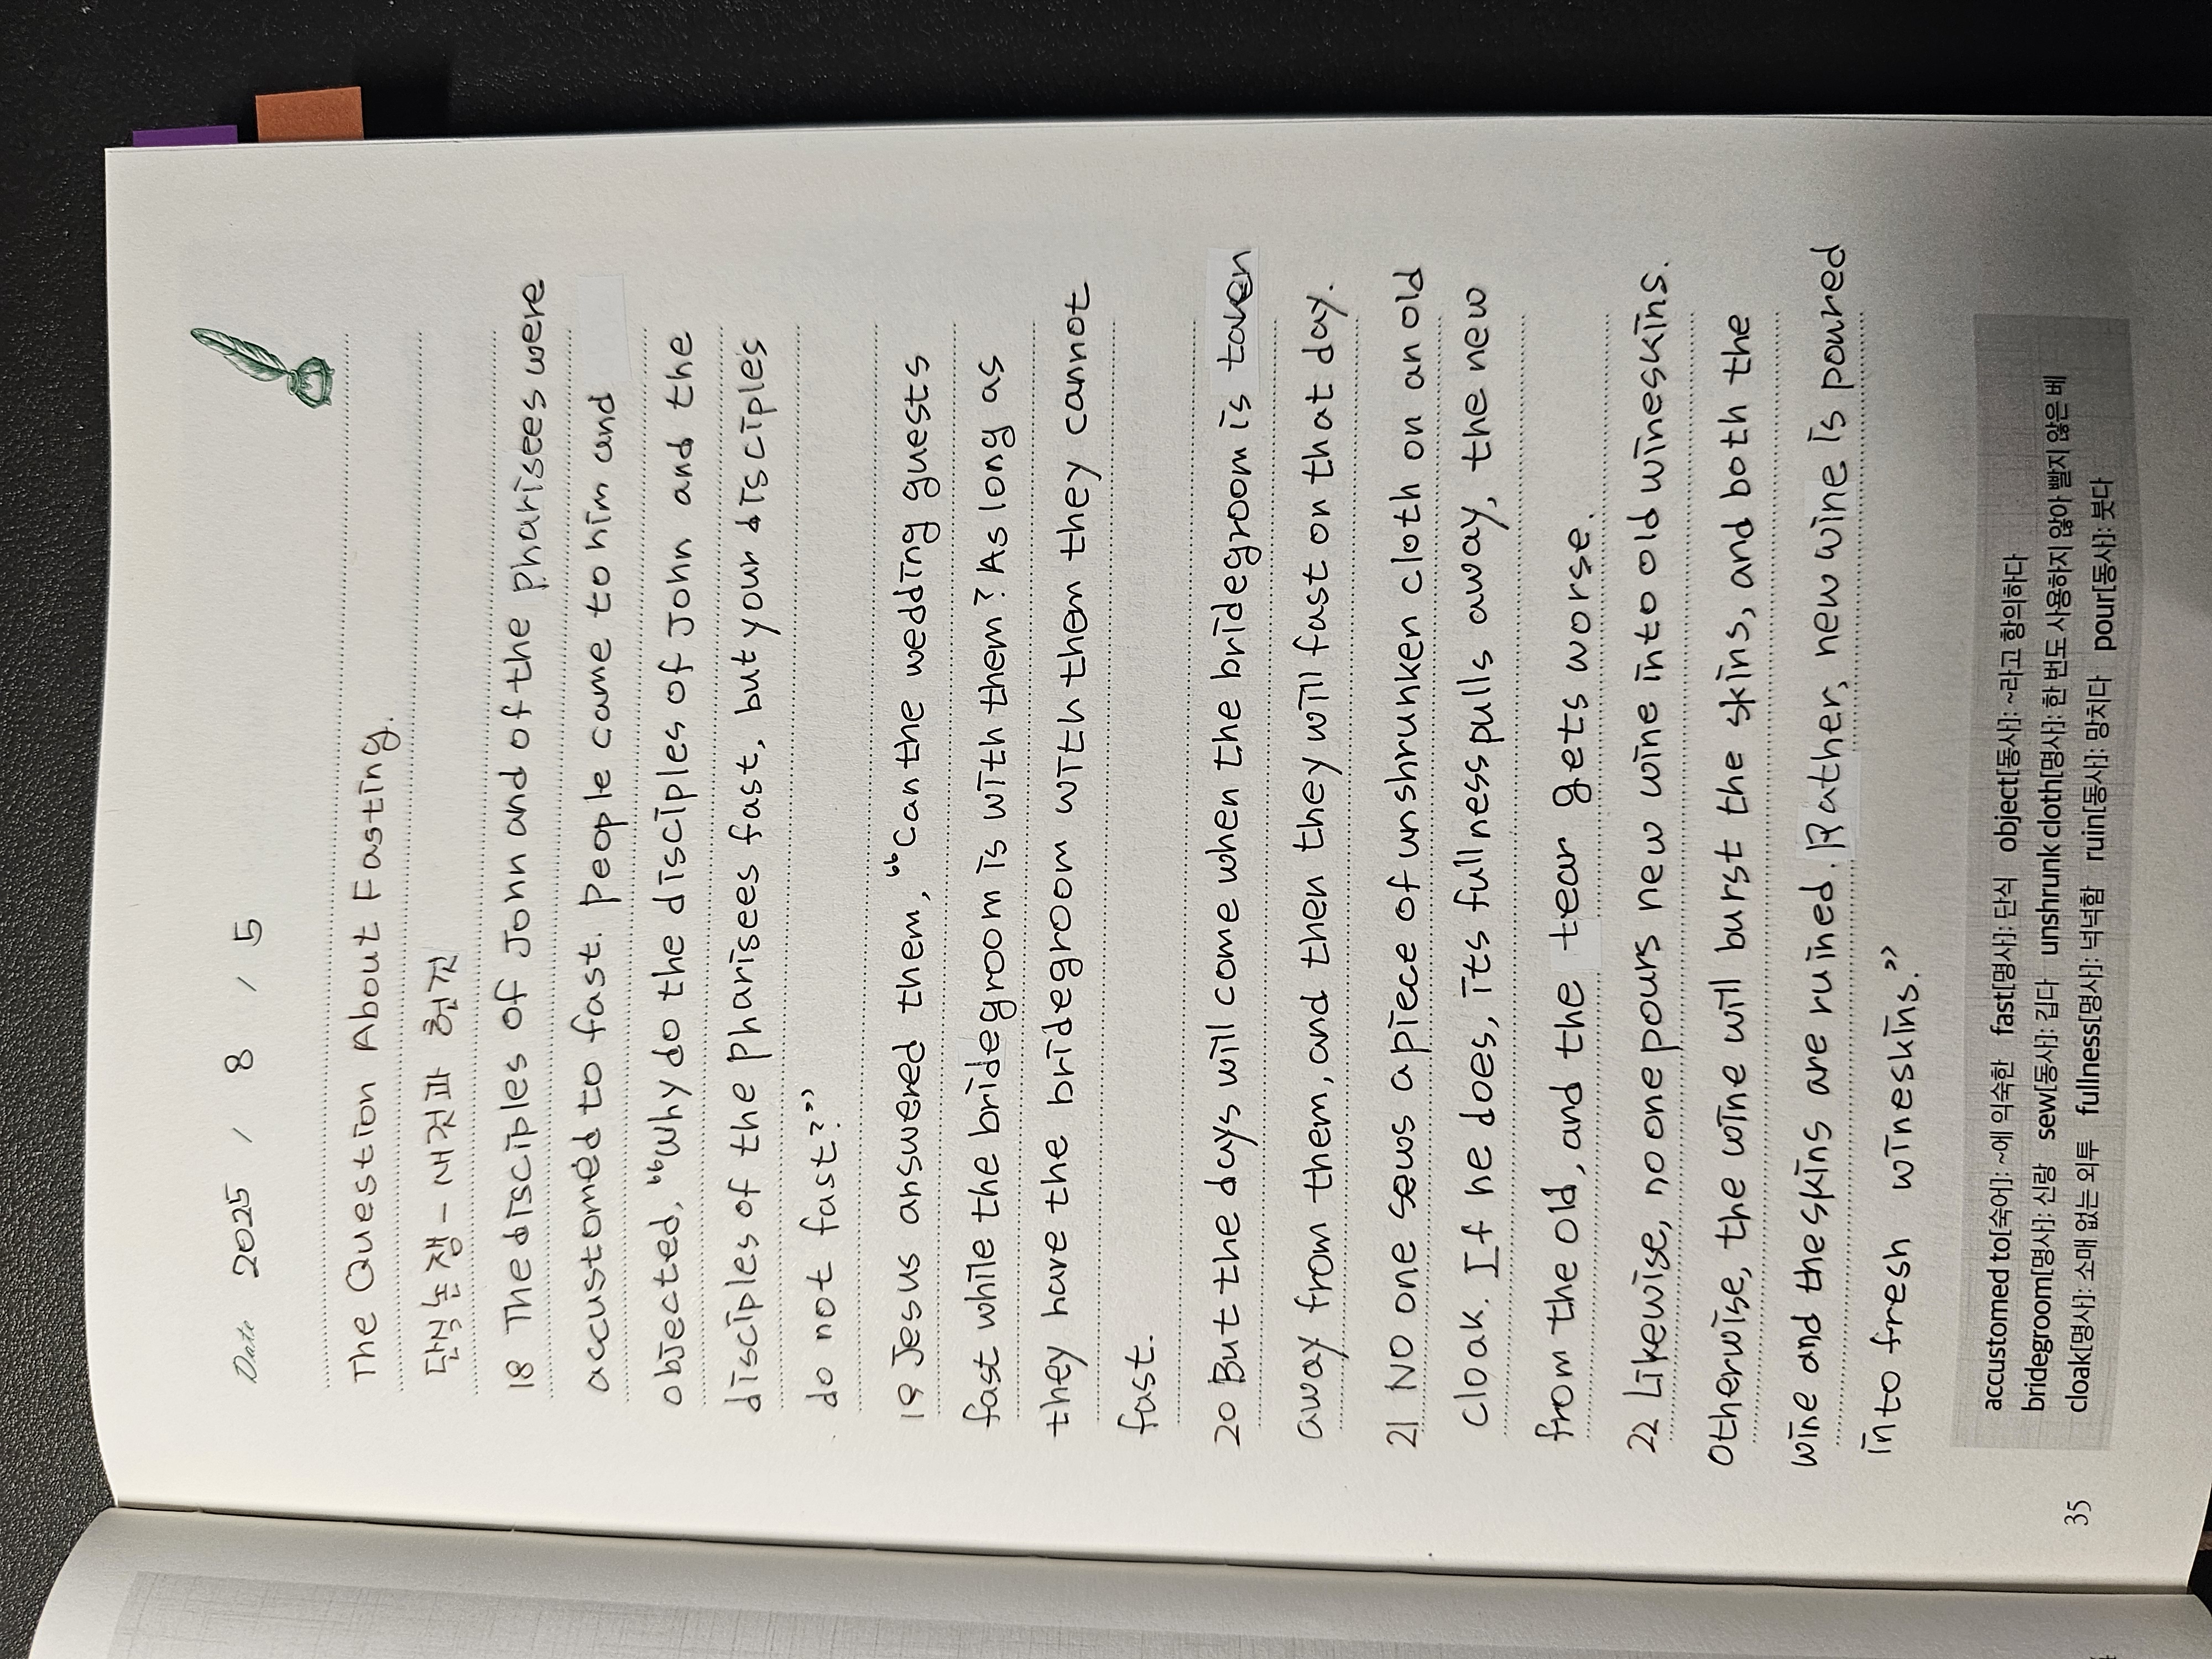 Date 2025 / 8 / 5
The Question About Fasting.
단식 논쟁 - 새것과 헌것
18 The disciples of John and of the pharisees were
accustomed to fast. People came to him and
objected, "Why do the disciples of John and the
disciples of the pharisees fast, but your disciples
do not fast?"
19 Jesus answered them, "Can the wedding guests
fast while the bridegroom is with them? As long as
they have the bridegroom with them they cannot
fast.
20 But the days will come when the bridegroom is taken
away from them, and then they will fast on that day.
21 No one sews a piece of unshrunken cloth on an old
cloak. If he does, its fullness pulls away, the new
from the old, and the tear gets worse.
22 Likewise, no one pours new wine into old wineskins.
Otherwise, the wine will burst the skins, and both the
wine and the skins are ruined. Rather, new wine is poured
into fresh wineskins."
accustomed to[숙어]: ~에 익숙한 fast[명사]: 단식 object[동사]: ~라고 항의하다
bridegroom[명사]: 신랑 sew[동사]: 깁다 unshrunk cloth[명사]: 한 번도 사용하지 않아 빨지 않은 베
cloak[명사]: 소매 없는 외투 fullness[명사]: 넉넉함 ruin[동사]: 망치다 pour[동사]: 붓다
35